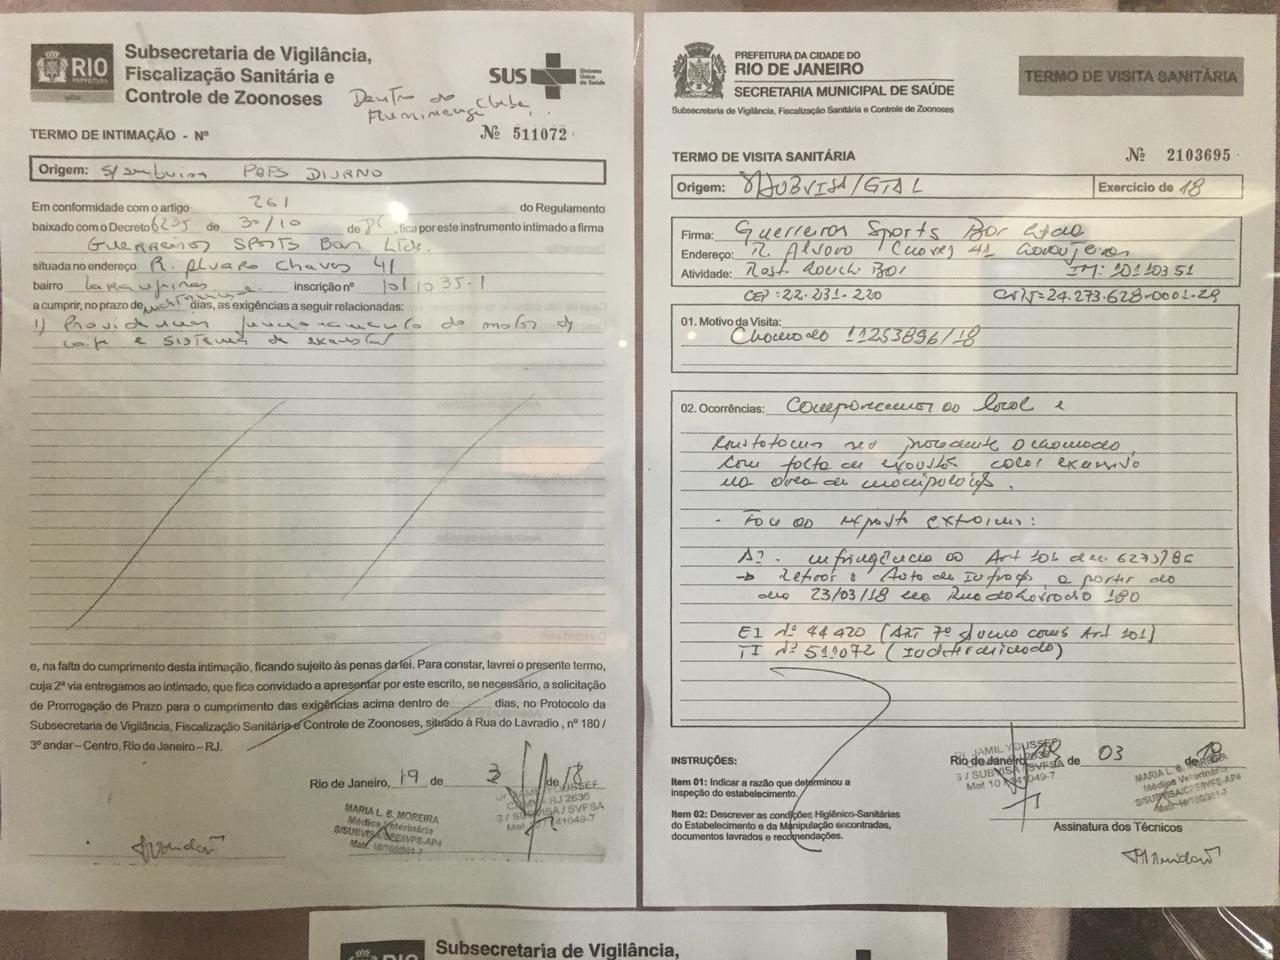 RIO
PREFEITURA
Subsecretaria de Vigilância,
Fiscalização Sanitária e
Controle de Zoonoses
SUS
Sistema
Único
de Saúde
Dentro do Clube
Fluminense
TERMO DE INTIMAÇÃO - Nº
Nº 511072
Origem: S/SUBVISA PAFS DIURNO
Em conformidade com o artigo 261 do Regulamento
baixado com o Decreto 6235 de 30/10 de 86, fica por este instrumento intimado a firma
Guerreiros Sports Bar Ltda.
situada no endereço R. Alvaro Chaves 41
bairro Laranjeiras inscrição nº 1011035-1
a cumprir, no prazo de dias, as exigências a seguir relacionadas:
1) Providenciar funcionamento do motor da
coifa e sistema de exaustão
e, na falta do cumprimento desta intimação, ficando sujeito às penas da lei. Para constar, lavrei o presente termo,
cuja 2ª via entregamos ao intimado, que fica convidado a apresentar por este escrito, se necessário, a solicitação
de Prorrogação de Prazo para o cumprimento das exigências acima dentro de dias, no Protocolo da
Subsecretaria de Vigilância, Fiscalização Sanitária e Controle de Zoonoses, situado à Rua do Lavradio, nº 180 /
3º andar – Centro, Rio de Janeiro – RJ.
Rio de Janeiro, 19 de 3 de 18
MARIA L. B. MOREIRA
Médica Veterinária
YOUSSEF
CRMV-RJ 2636
S / SUBVISA / SVFSA
Mat 10 / 141049-7
PREFEITURA DA CIDADE DO
RIO DE JANEIRO
SECRETARIA MUNICIPAL DE SAÚDE
Subsecretaria de Vigilância, Fiscalização Sanitária e Controle de Zoonoses
TERMO DE VISITA SANITÁRIA
TERMO DE VISITA SANITÁRIA
Nº 2103695
Origem: SUBVISA/GTAL
Exercício de 18
Firma: Guerreiros Sports Bar Ltda
Endereço: R. Alvaro Chaves 41 Laranjeiras
Atividade: Rest. Lanch Bar IM: 1011035 1
CEP: 22.231-220 CNPJ=24.273.628-0001-29
01. Motivo da Visita:
Chamado 11253896/18
02. Ocorrências: Comparecemos ao local e
constatamos ser procedente o chamado,
com falta de exaustão, calor excessivo
na área de manipulação.
- Face ao exposto extraímos:
AI. infringência ao Art 101 dec. 6235/86
→ Retirar o Auto de Infração a partir do
dia 23/03/18 na Rua do Lavradio 180
EI Nº 44420 (ART 7º Art 101)
TI Nº 511072 (Indeterminado)
INSTRUÇÕES:
Item 01: Indicar a razão que determinou a
inspeção do estabelecimento.
Item 02: Descrever as condições Higiênico-Sanitárias
do Estabelecimento e da Manipulação encontradas,
documentos lavrados e recomendações.
Dr. JAMIL YOUSSEF
Rio de Janeiro, 19 de 03 de 18
S / SUBVISA / SVFSA
Mat 10 / 141049-7
MARIA L. B. MOREIRA
Médica Veterinária
Assinatura dos Técnicos
RIO
Subsecretaria de Vigilância,